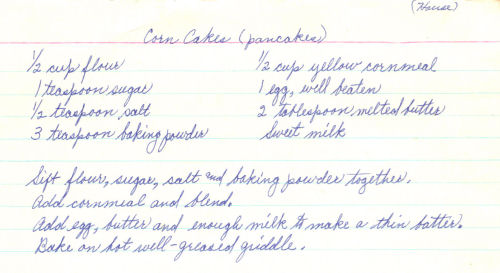 (House)
Corn Cakes (pancakes)
1/2 cup flour
1/2 cup yellow cornmeal
1 teaspoon sugar
1 egg, well beaten
1/2 teaspoon salt
2 tablespoon melted butter
3 teaspoon baking powder
Sweet milk
Sift flour, sugar, salt and baking powder together.
Add cornmeal and blend.
Add egg, butter and enough milk to make a thin batter.
Bake on hot well-greased griddle.